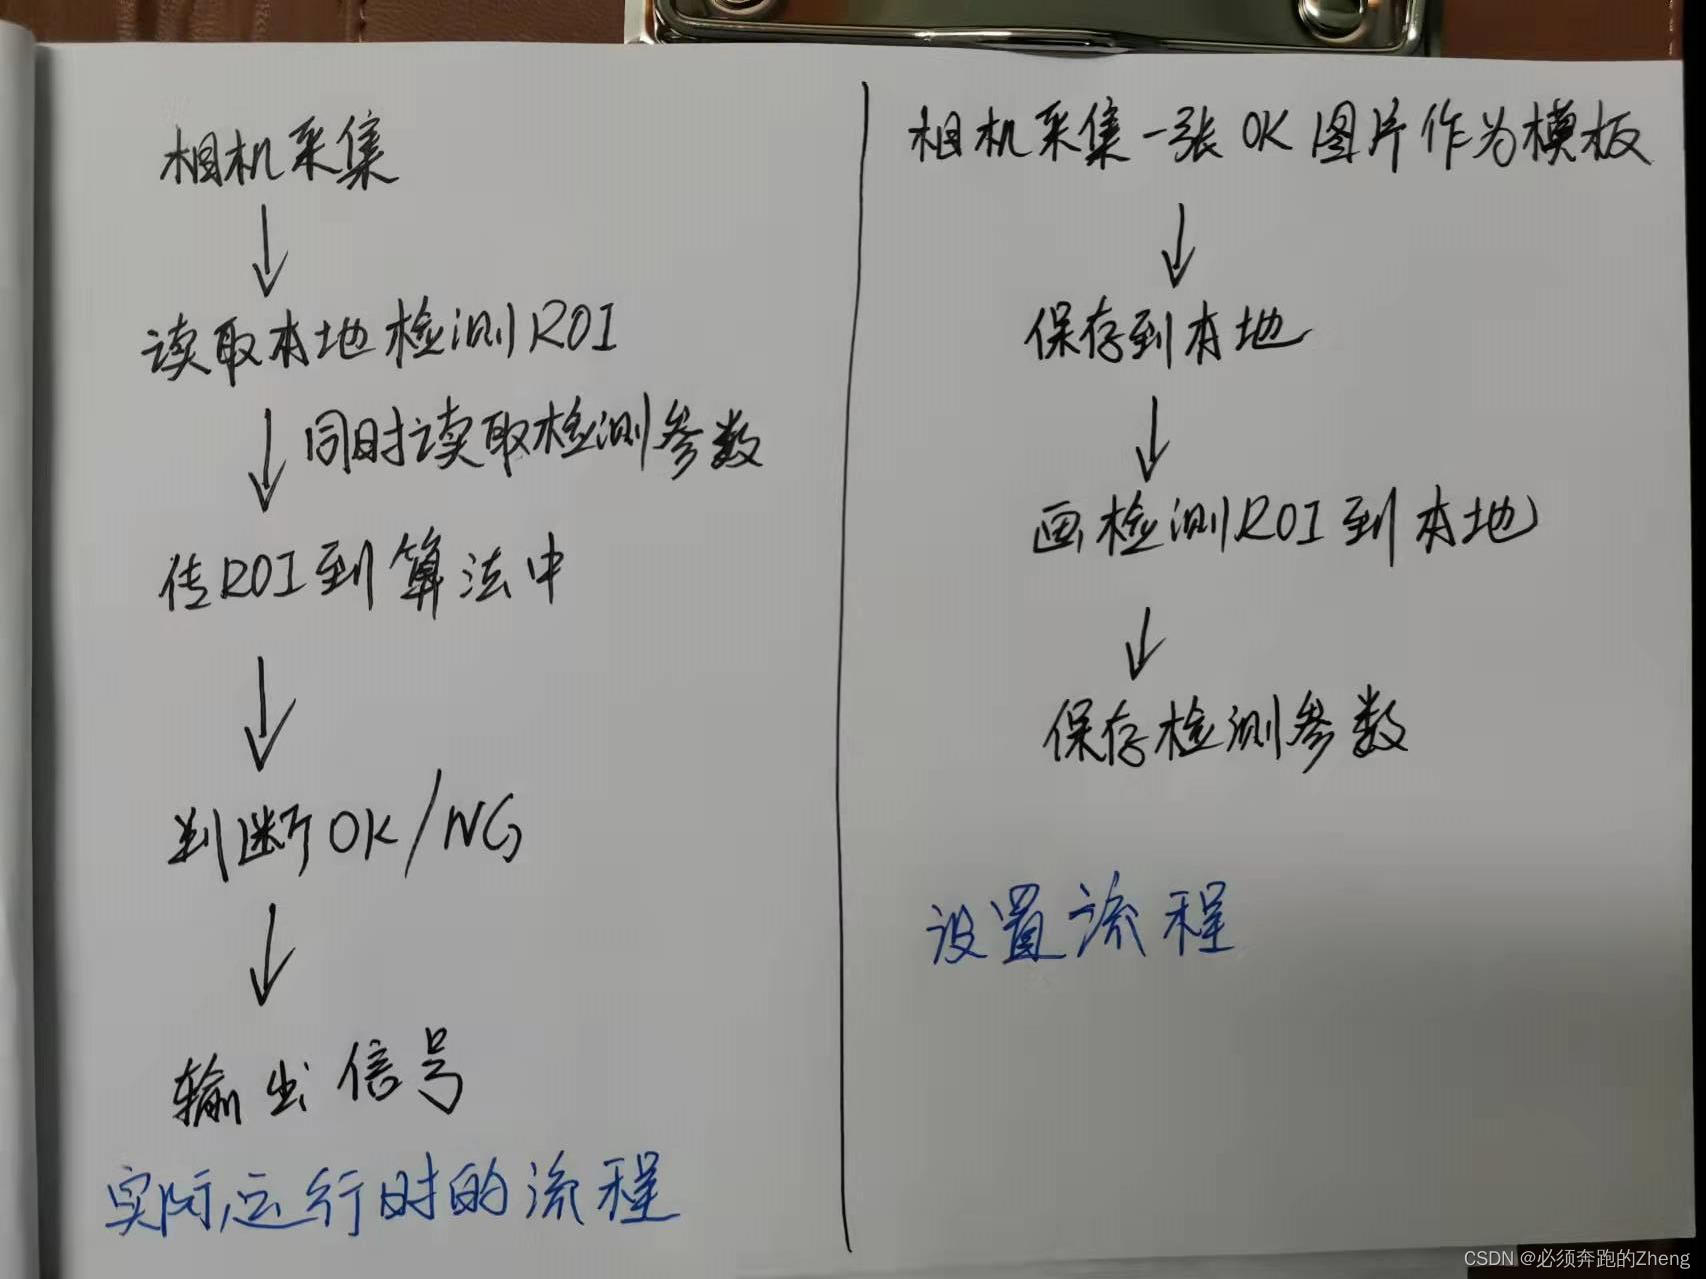 相机采集
↓
读取本地检测ROI
↓ 同时读取检测参数
传ROI到算法中
↓
判断OK/NG
↓
输出信号
实际运行时的流程
相机采集一张OK图片作为模板
↓
保存到本地
↓
画检测ROI到本地
↓
保存检测参数
设置流程
CSDN @必须奔跑的Zheng